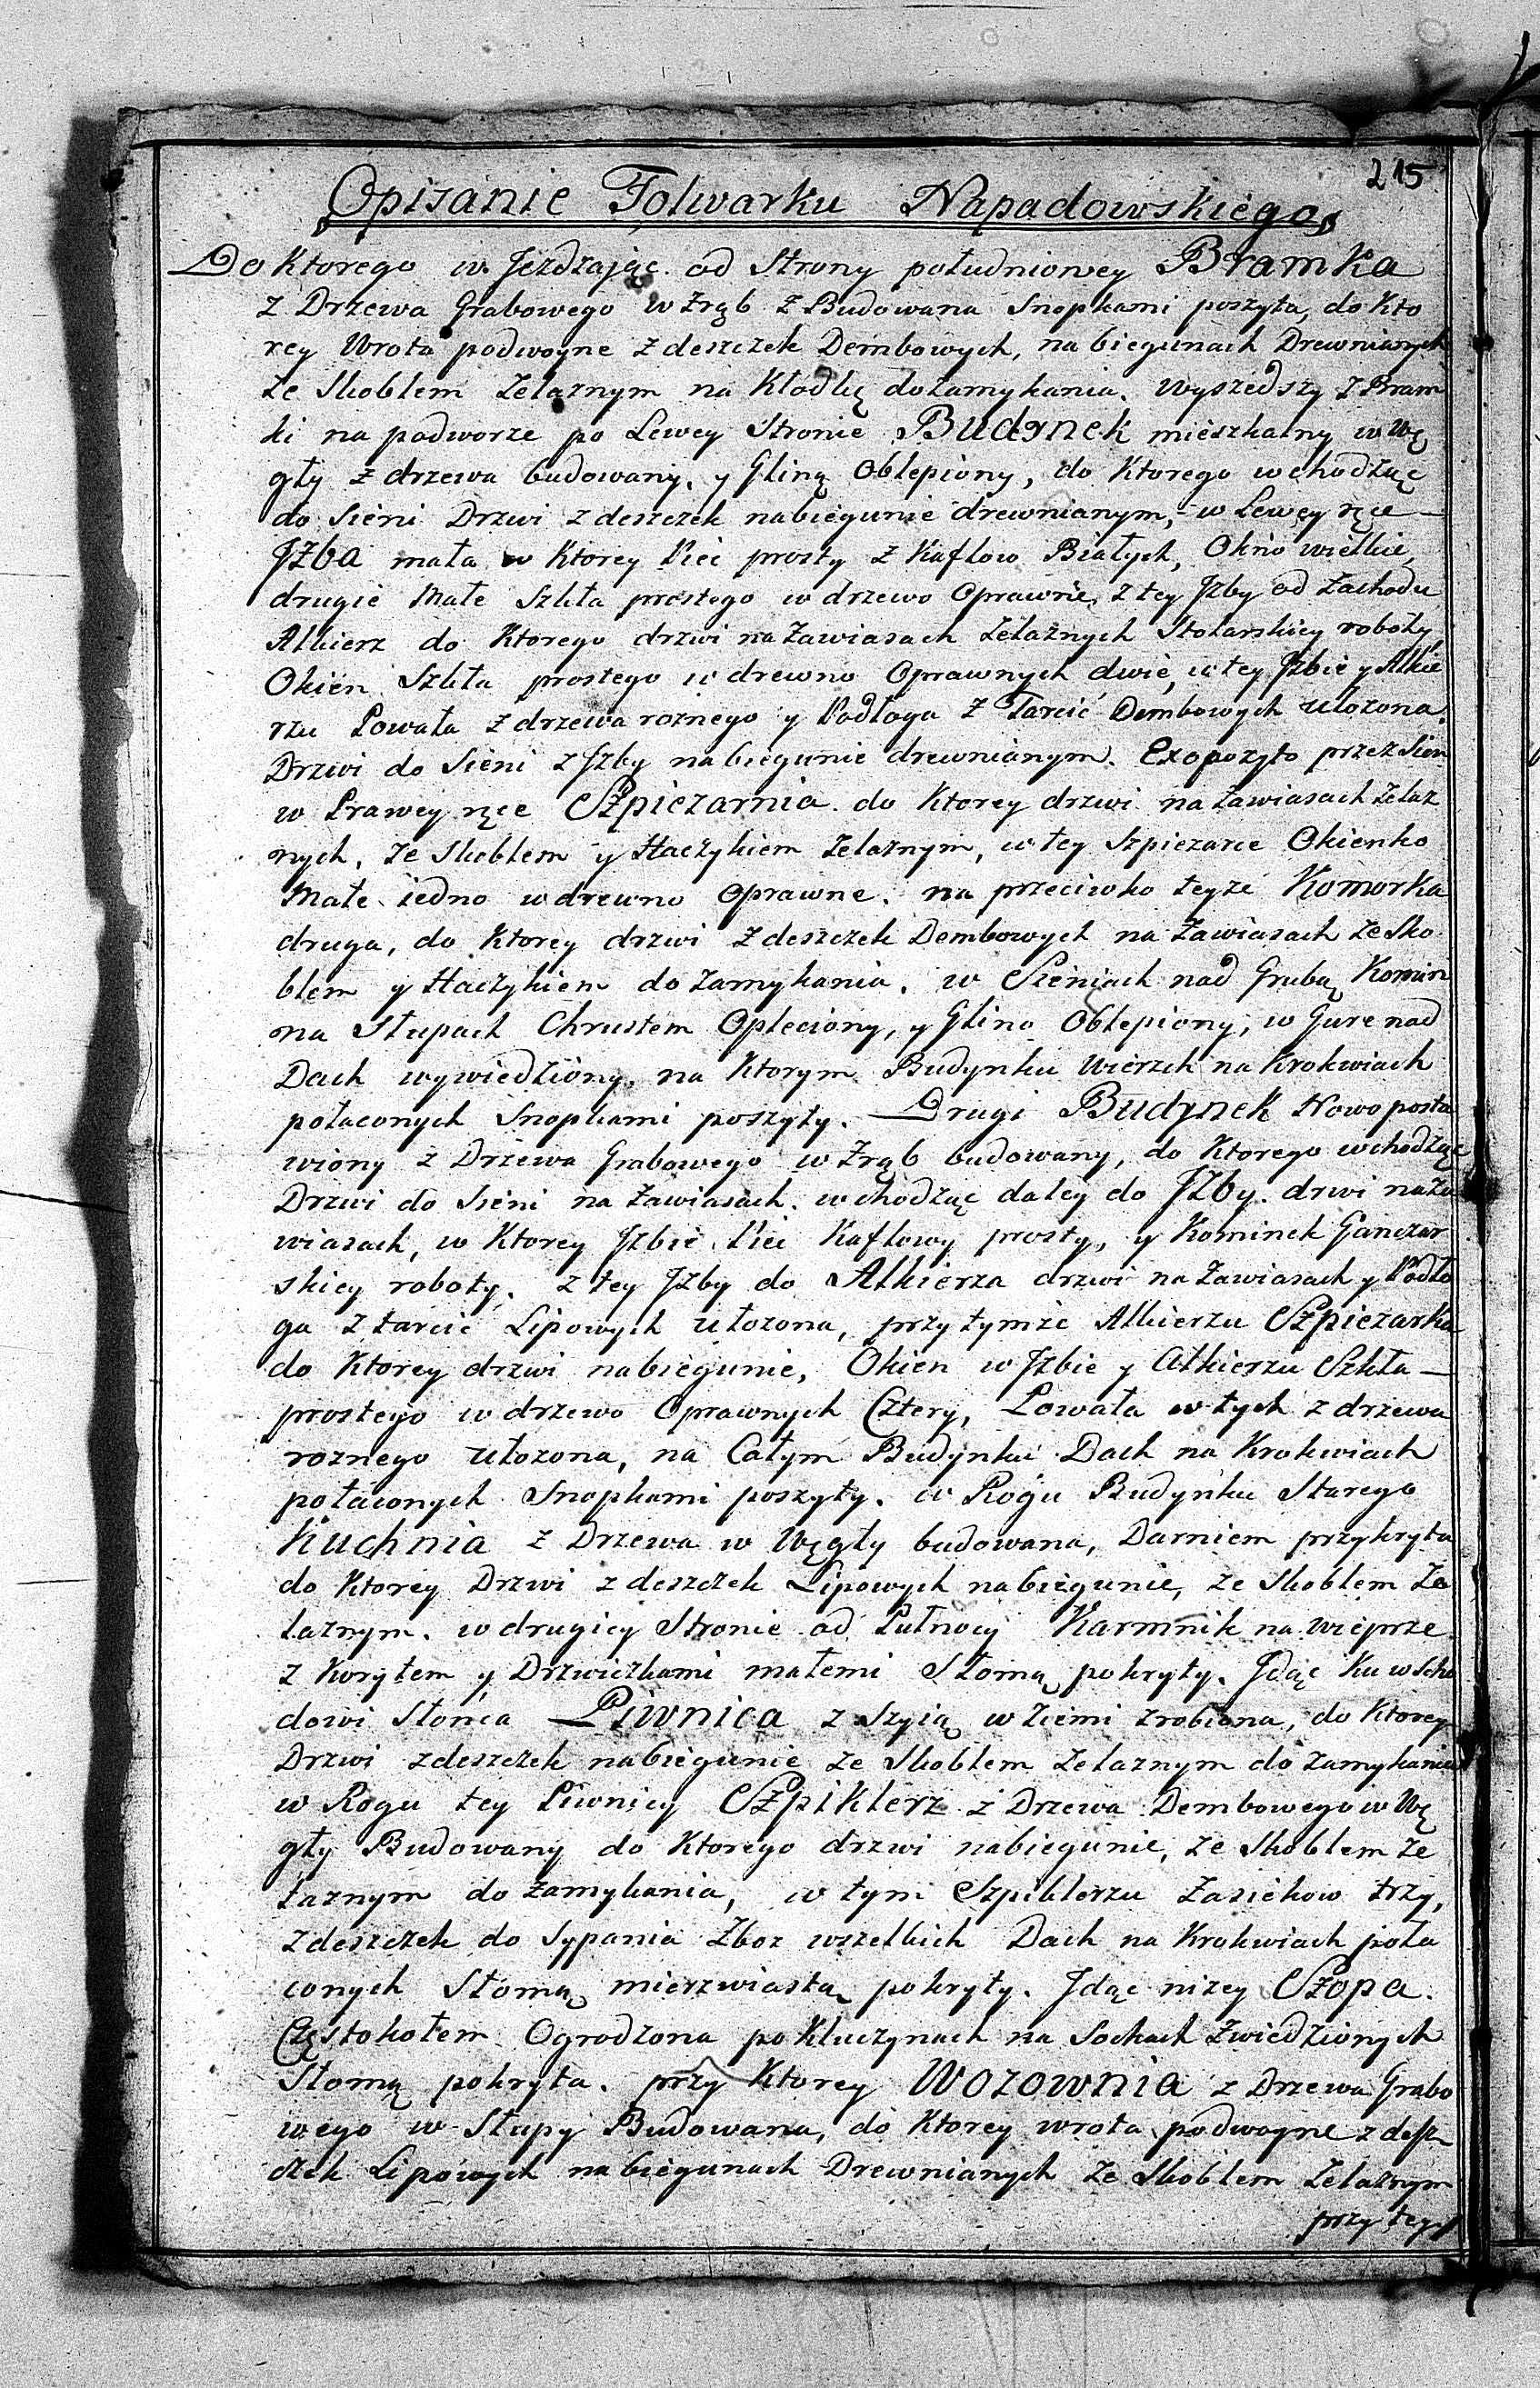 215
Opisanie Folwarku Napadowskiego,
Do Ktorego w Jezdzając od Strony południowey Bramka
z Drzewa Grabowego w Zrąb z Budowana Snopkami poszyta, do Kto
rey Wrota podwoyne z deszczek Dembowych, na biegunach Drewnianych
ze Skoblem Zelaznym na Kłodkę do Zamykania. Wyszedszy z Bram
ki na podworze po Lewey Stronie Budynek mieszkalny w Wę
gły z drzewa budowany, y Gliną Oblepiony, do Ktorego wchodząc
do Sieni Drzwi z deszczek na biegunie drewnianym, w Lewey ręce
Jzba mała w Ktorey Piec prosty z Kaflow Białych, Okno wielkie,
drugie Małe Szkła prostego w drzewo Oprawne, z tey Jzby od Zachodu
Alkierz do Ktorego drzwi na Zawiasach Zelaznych Stolarskiey roboty,
Okien Szkła prostego w drewno Oprawnych dwie, w tey Jzbie y Alkie
rzu Powała z drzewa roznego y Podłoga z Tarcić Dembowych ułozona.
Drzwi do Sieni z Jzby na biegunie drewnianym. Exopozyto przez Sien
w Prawey ręce Szpiezarnia do Ktorey drzwi na Zawiasach Zelaz
nych, ze Skoblem y Haczykiem Zelaznym, w tey Szpizarce Okienko
Małe iedno w drewno Oprawne. na przeciwko teyze Komorka
druga, do Ktorey drzwi z deszczek Dembowych na Zawiasach ze Sko
blem y Haczykiem do Zamykania. w Sieniach nad Grubą Komin
na Słupach Chrustem Opleciony, y Glino Oblepiony, w Gure nad
Dach wywiedziony, na Ktorym Budynku Wierzch na Krokwiach
połaconych Snopkami poszyty. Drugi Budynek Nowo posta
wiony z Drzewa Grabowego w Zrąb budowany, do Ktorego wchodząc
Drzwi do Sieni na Zawiasach. wchodząc daley do Jzby drwi na Za
wiasach, w Ktorey Jzbie Piec Kaflowy prosty, y Kominek Ganczar
skiey roboty. z tey Jzby do Alkierza drzwi na Zawiasach y Podło
ga z tarcic Lipowych ułozona, przy tymze Alkierzu Szpiezarka
do Ktorey drzwi na biegunie, Okien w Jzbie y Alkierzu Szkła
prostego w drzewo Oprawnych Cztery, Powała w tych z drzewa
roznego ułozona, na Całym Budynku Dach na Krokwiach
połaconych Snopkami poszyty. w Rogu Budynku Starego
Kuchnia z Drzewa w Węgły budowana, Darniem przykryta
do Ktorey Drzwi z deszczek Lipowych na biegunie, ze Skoblem Ze
laznym. w drugiey Stronie od Pułnocy Karmnik na wieprze
z Korytem y Drzwiczkami małemi Słomą pokryty. Jdąc Ku wscho
dowi Słonca Piwnica z Szyią w Ziemi zrobiona, do Ktorey
Drzwi z deszczek na biegunie ze Skoblem Zelaznym do zamykania
w Rogu tey Piwnicy Szpiklerz z Drzewa Dembowego w Wę
gły Budowany do Ktorego drzwi na biegunie, ze Skoblem Ze
laznym do Zamykania, w tym Szpiklerzu Zasiekow trzy,
z deszczek do Sypania Zboz wszelkich Dach na Krokwiach poła
conych Słomą mierzwiastą pokryty. Jdąc nizey Szopa.
Częstokołem Ogrodzona po Kluczynach na Sochach Zwiedzionych
Słomą pokryta. przy Ktorey Wozownia z Drzewa Grabo
wego w Słupy Budowana, do Ktorey wrota podwoyne z desz
czek Lipowych na biegunach Drewnianych ze Skoblem Zelaznym
przy tey